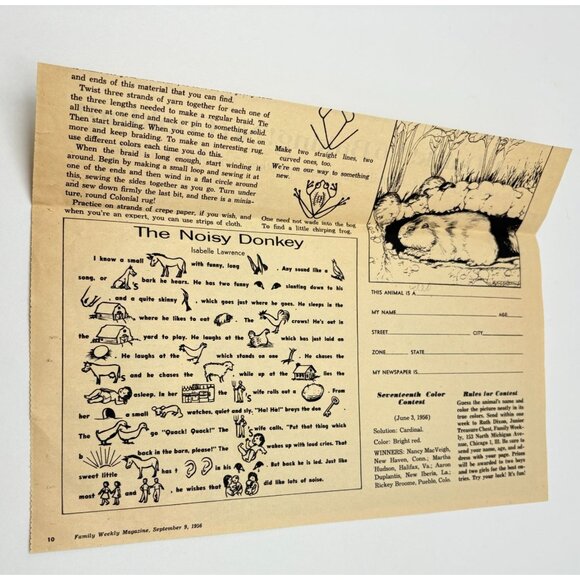 and ends of this material that you can find.
Twist three strands of yarn together for each one of
the three lengths needed to make a regular braid. Tie
all three at one end and tack or pin to something solid.
Then start braiding. When you come to the end, tie on
more and keep braiding. To make an interesting rug,
use different colors each time you do this.
When the braid is long enough, start winding it
around. Begin by making a small loop and sewing it at
one of the ends and then wind in a flat circle around
this, sewing the sides together as you go. Turn under
and sew down firmly the last bit, and there is a minia-
ture, round Colonial rug!
Practice on strands of crepe paper, if you wish, and
when you're an expert, you can use strips of cloth.
Make two straight lines, two
curved ones, too.
We're on our way to something
new.
One need not wade into the bog
To find a little chirping frog.
The Noisy Donkey
Isabelle Lawrence
I know a small with funny, long . Any sound like a
song, or 's bark he hears. He has two funny slanting down to his
and a quite skinny , which goes just where he goes. He sleeps in the
where he likes to eat . The crows! He's out in
the yard to play. He laughs at the which has just laid an
. He laughs at the which stands on one . He chases the
's and he chases the , while up at the lies the
asleep. In her the 's wife rolls out a . From
her a small watches, quiet and sly, "Ha! Ha!" brays the don
The go "Quack! Quack!" The 's wife calls, "Put that thing which
b back in the barn, please!" The wakes up with loud cries. That
sweet little has in his . But back he is led. Just like
most and , he wishes that did like lots of noise.
10 Family Weekly Magazine, September 9, 1956
THIS ANIMAL IS A
MY NAME AGE
STREET CITY
ZONE STATE
MY NEWSPAPER IS
Seventeenth Color
Contest
(June 3, 1956)
Solution: Cardinal.
Color: Bright red.
WINNERS: Nancy MacVeigh,
New Haven, Conn.; Martha
Hudson, Halifax, Va.; Aaron
Duplantis, New Iberia, La.;
Rickey Broome, Pueblo, Colo.
Rules for Contest
Guess the animal's name and
color the picture neatly in its
true colors. Send within one
week to Ruth Dixon, Junior
Treasure Chest, Family Week-
ly, 153 North Michigan Ave-
nue, Chicago 1, Ill. Be sure to
send your name, age, and ad-
dress with your page. Prizes
will be awarded to two boys
and two girls for the best en-
tries. Try your luck! It's fun!